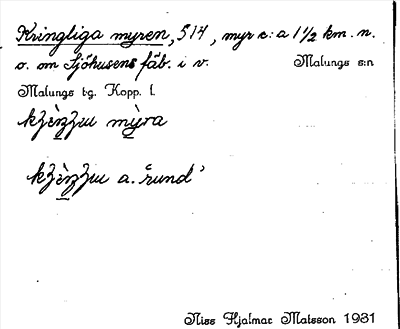 Kringliga myren, 514, myr c:a 1 1/2 km. n.
o. om Sjöhusens fäb. i v. Malungs s:n
Malungs tg. Kopp. l.
mỳra
a. "rund"
Niss Hjalmar Matsson 1931